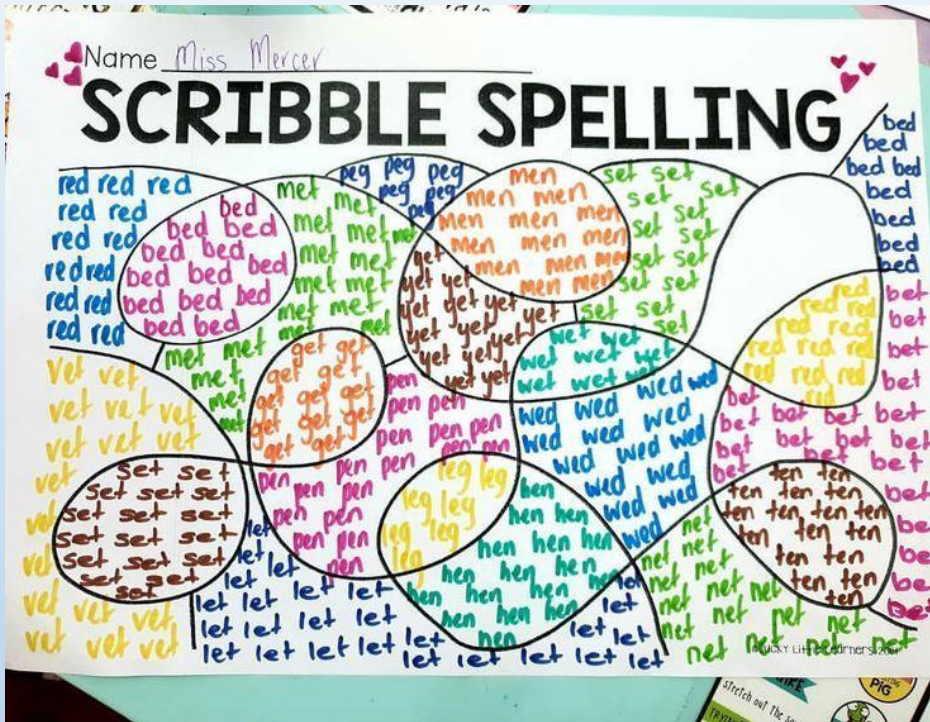 Name Miss Mercer
SCRIBBLE SPELLING
red red red
red red
red red
red red
red red
red red
bed
bed bed
bed bed
bed bed bed
bed bed bed
bed bed
met
met
met met met
met met
met met
met met
met met
met met
met
met
met
peg peg peg
peg peg
peg
men
men men
men men men
men men men
men men men
men men
set set
set set
set set
set set
set set
set set
set set
set
bed
bed
bed bed
bed
bed
bed
bed
yet
yet yet
yet yet yet
yet yet yet
yet yet yet
yet yet
red
red red
red red red
red red red
red
bet
bet
bet
bet
bet
bet bet bet bet
bet bet bet bet
bet bet
bet
vet vet
vet vet vet
vet vet vet
vet
vet
vet
vet vet vet
vet vet vet
get get
get get
get get get
get get get
get get get
wet wet
wet wet wet
wet wet wet
pen
pen pen
pen pen pen
pen pen pen pen
pen pen pen
pen pen
pen pen
pen
wed wed
wed wed wed
wed wed wed
wed wed wed
wed wed
wed wed
wed
set set
set set set
set set set
set set set
set set set
set set
set
leg leg
leg leg
leg leg
leg
hen
hen hen
hen hen hen
hen hen hen
hen hen hen
hen hen hen
hen
ten ten
ten ten ten
ten ten ten ten
ten ten ten
ten ten
ten ten
ten
let
let
let let
let let let let
let let let let let
let let let let let
let
let
let let
let let let let let
net
net net
net net net
net net net
net net net
net net net net
LUCKY Little Learners
stretch out the
PIG